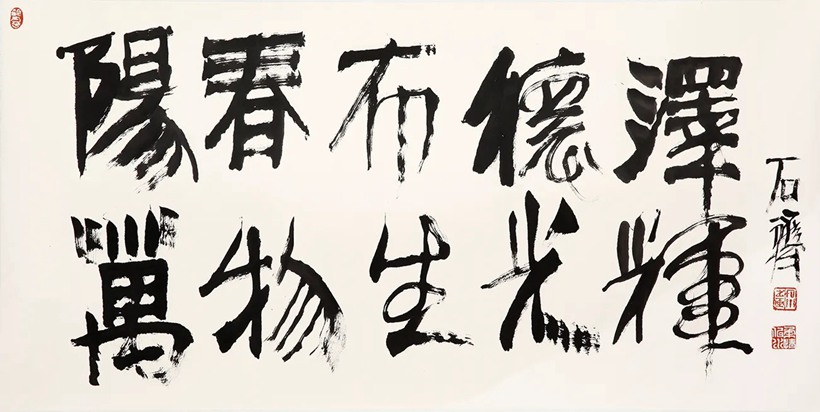 陽春布德澤
萬物生光輝
石齊